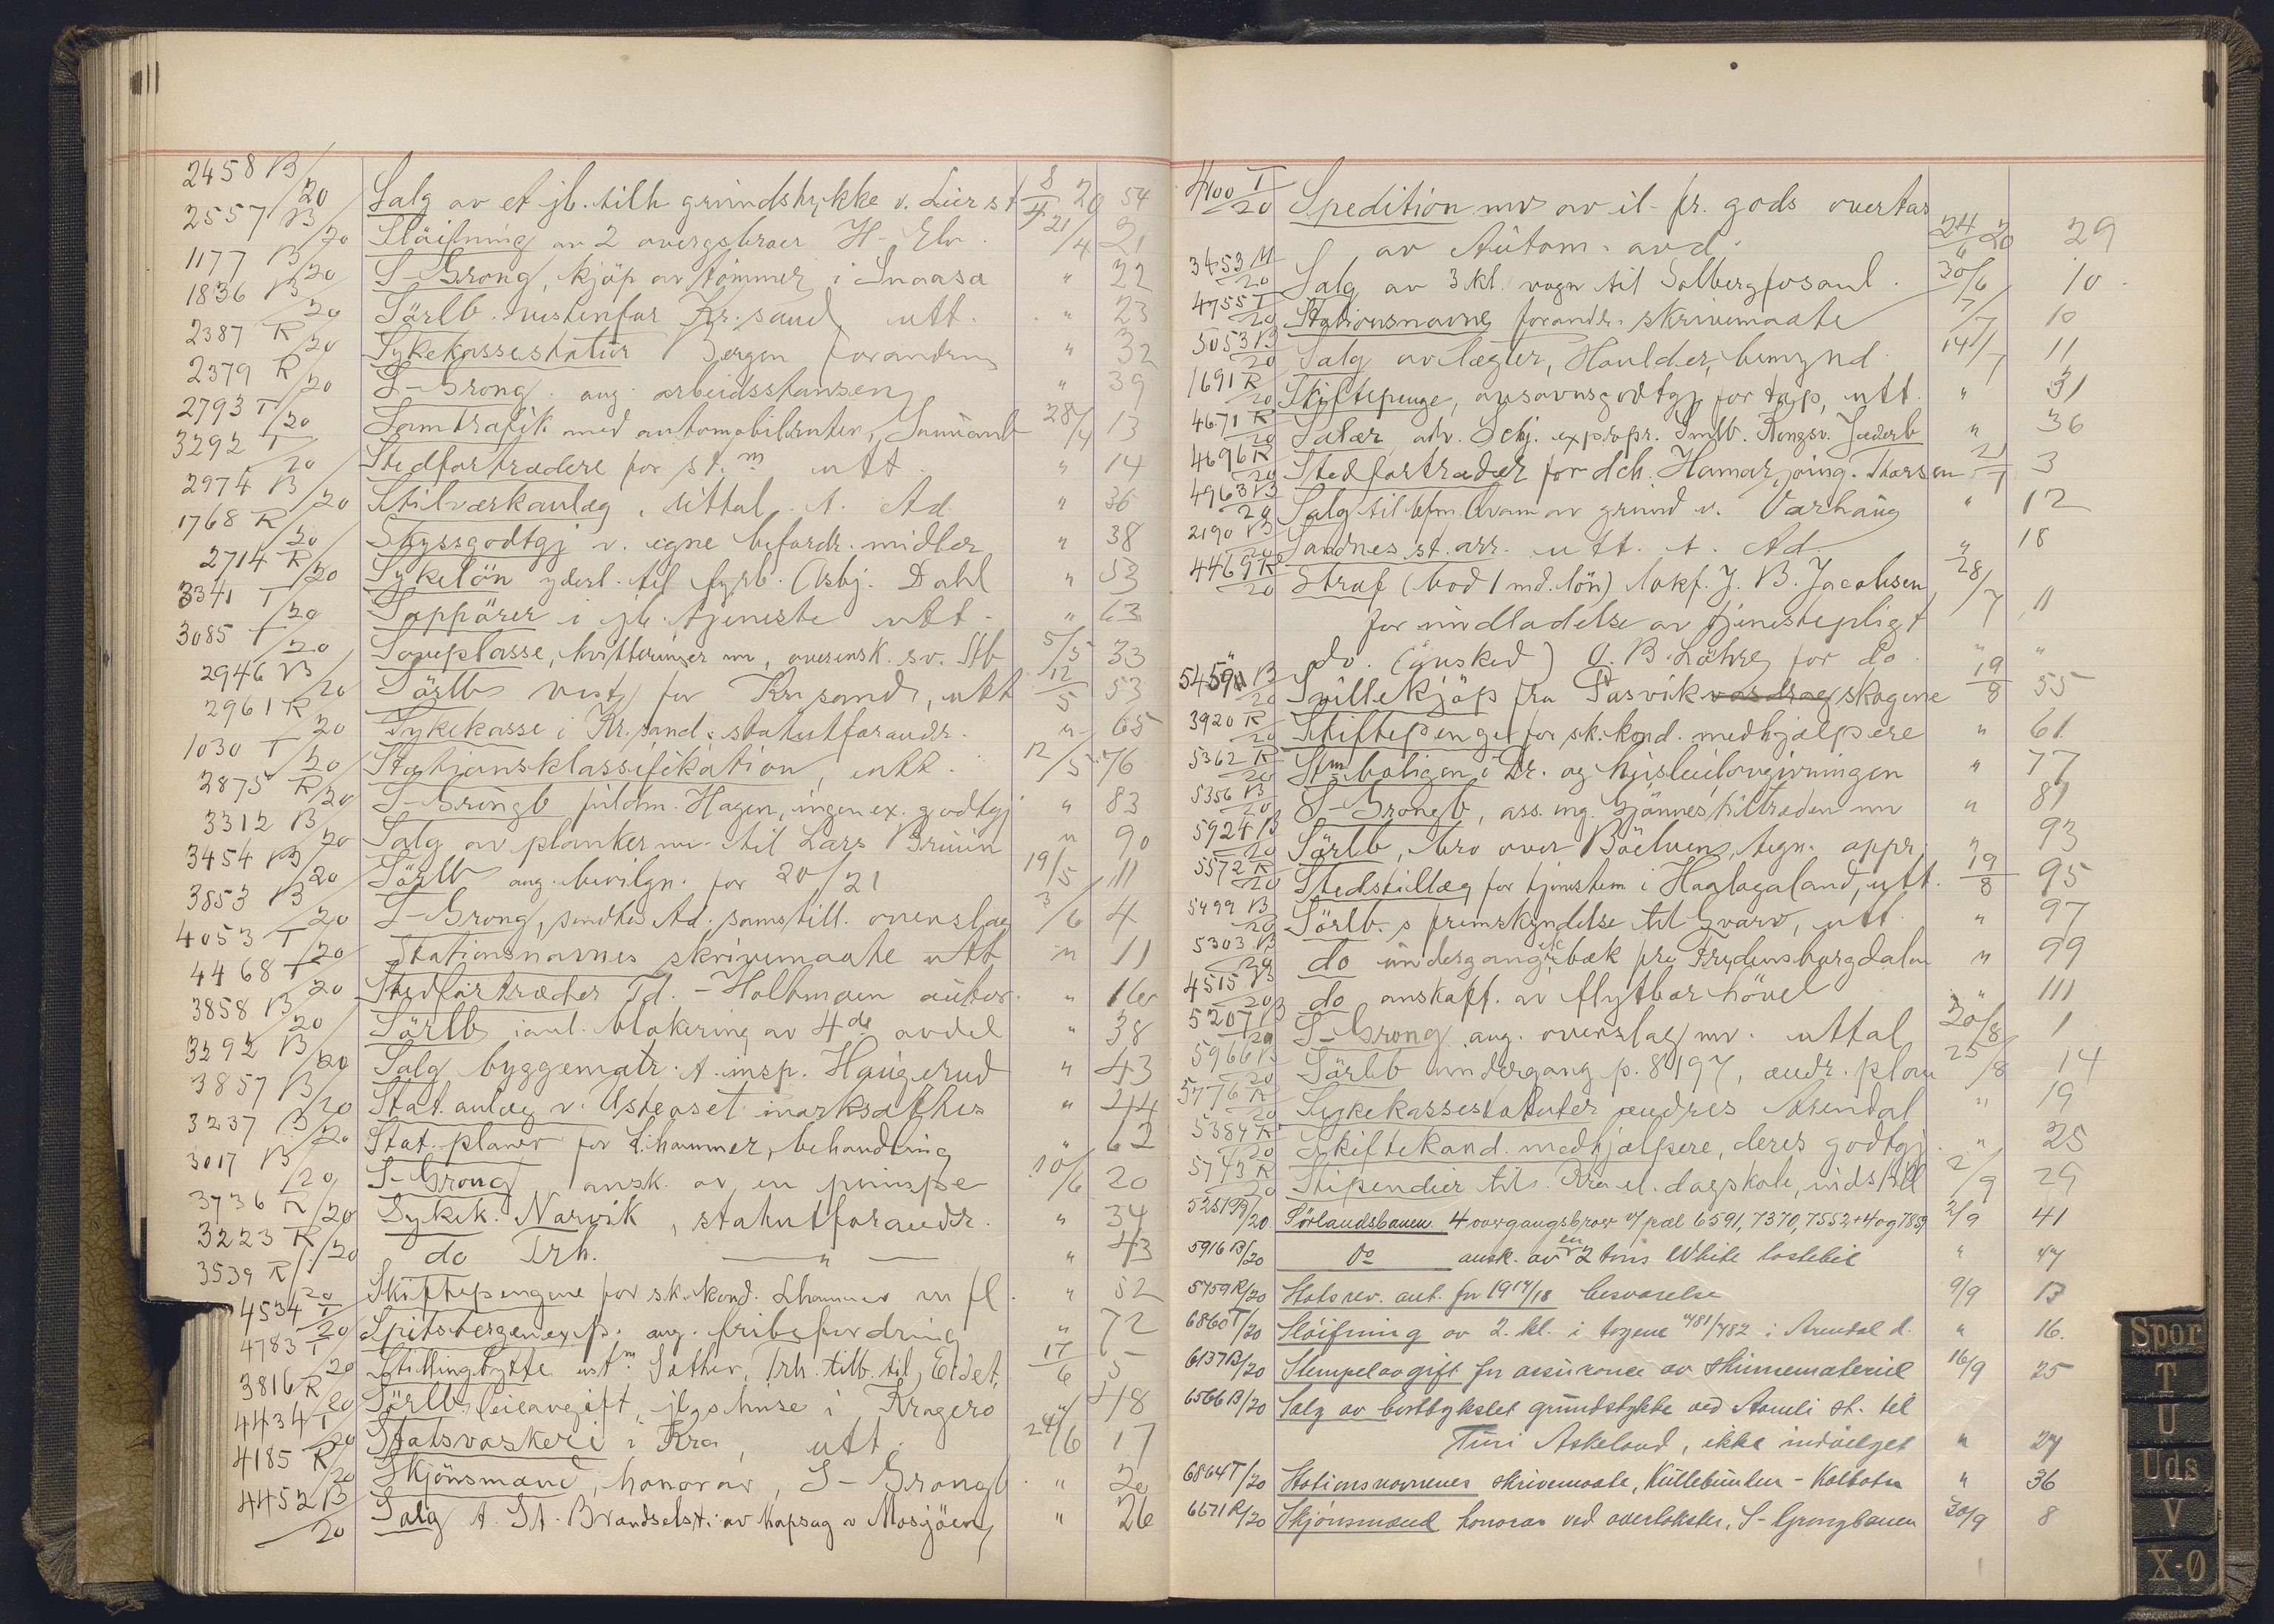 2458 B/20 Salg av et jb. tilh. grundstykke v. Lier st 8/4 20 54
2557 B/20 Sløifning av 2 overgsbroer H-Elv. 21/4 21
1177 B/20 S-Grong, kjøp av tømmer i Snaasa " 22
1836 B/20 Sørlb. vestenfor Kr.sand, utt. " 23
2387 R/20 Sykekassestatut Bergen forandring " 32
2379 R/20 S-Grong. ang. arbeidsstansen " 39
2793 T/20 Samtrafik med automobilruter, 28/4 13
3292 T/20 Stedfortrædere for st.m utt. " 14
2974 B/20 Stilverkanlæg, uttal. t. Ad. " 36
1768 R/20 Skyssgodtgj v. egne befordr. midler " 38
2714 R/20 Sykeløn yderl. til fyrb. Asbj. Dahl " 53
3341 T/20 Sappører i jb. tjeneste utt. " 63
3085 T/20 Soveplasse, kvitteringer mv, overensk. sv. Stb 5/5 33
2946 B/20 Sørlb vestf for Kr.sand, utt 12/5 53
2961 R/20 Sykekasse i Kr.sand: statutforandr. " 65
1030 T/20 Stationsklassifikation, utt. 12/5 76
2875 R/20 S-Grongb fuldm. Hagen, ingen ex. godtgj " 83
3312 B/20 Salg av planker mv. til Lars Bruun " 90
3454 B/20 Sørlb ang. bevilgn. for 20/21 19/5 111
3853 B/20 S-Grong, sendtes Ad. samstill. overslag 3/6 4
4053 T/20 Stationsnavnes skrivemaate utt " 11
4468 T/20 Stedfortræder Td. - Holtmoen autor. " 16
3858 B/20 Sørlb innl. blokering av 4de avdel " 38
3292 B/20 Salg byggematr. t. insp. Haugerud " 43
3857 B/20 Stat. anlæg v. Ustaoset iverksættes " 44
3237 B/20 Stat. planer for L.hammer, behandling " 62
3017 B/20 S-Grong, ansk. av en 10/6 20
3736 R/20 Sykek. Narvik, statutforandr. " 34
3223 R/20 do Trh. — " — " 43
3539 R/20 Skiftepengene for sk.kond. Lhammer m fl. " 52
4534 T/20 Spitsbergenexp. ang. fribefordring " 72
4783 T/20 Stillingbytte ust.m Sæther, Trh. tilb. til, Eidet, 17/6 5
3816 R/20 Sørlb. leieavgift jb.s huse i Kragerø " 48
4434 T/20 Statsvaskeri i Kra, utt. 24/6 17
4185 R/20 Skjønsmænd, honorar, S-Grongb. " 20
4452 B/20 Salg t. St. Brændselst: av kapsag v Mosjøen, " 26
4100 T/20 Spedition mv av il- fr. gods overtas
av Autom. avd. 24/6 20 29
3453 M/20 Salg av 3 kl. vogn til Solbergfosanl. 30/6 10
4755 T/20 Stationsnavne forandr. skrivemaate 7/7 10
5053 B/20 Salg av lægter, Houlder, bemynd. 14/7 11
1691 R/20 Skiftepenge, ansavnsgodtgj for tap, utt. " 31
4671 R/20 Salær adv. Schj. expropr. Smlb. Kongsv. Jæderb " 36
4696 R/20 Stedfortræder for dch. Hamar, joing. Thorsen 21/7 3
4963 B/20 Salg til bfm. Kvam av grund v. Varhaug " 12
2190 B/20 Sandnes st. arr. utt. t. Ad. " 18
4469 R/20 Straf (bod 1 md. løn) lokf. J. B. Jacobsen,
for undladelse av tjenestepligt 28/7 11
" do. (ønsked) O. B. Løhre for do. " "
5459 B/20 Svillekjøp fra Pasvikvasdragskogene 19/8 55
3920 R/20 Skiftepenger for sk.kond. medhjælpere " 61
5362 R/20 Stm boligen i Dr. og husleielovgivningen " 77
5356 B/20 S-Grongb, ass. ing. Gjønnes tiltræden mv " 81
5924 B/20 Sørlb, bro over Bøelven, tegn. appr. " 93
5572 R/20 Stedstillæg for tjenstem i Haalogaland, utt. 19/8 95
5499 B/20 Sørlb.s fremskyndelse til Gvarv, utt " 97
5303 B/20 do undergang, bæk pre Frydensborgdalen " 99
4515 B/20 do anskaff. av flytbar høvel " 111
5207 B/20 S-Grong ang. overslag mv. uttal 20/8 1
5966 B/20 Sørlb undergang p. 8197, ændr. plan 25/8 14
5776 R/20 Sykekassestatuter ændres Arendal " 19
5384 R/20 Skiftekond. medhjælpere, deres godtgj " 25
5743 R/20 Stipendier til Kra el. dagskole, indstill 2/9 29
5251 B/20 Sørlandsbanen 4 overgangsbroer v/ pæl 6591, 7370, 7552+4 og 7859 2/9 41
5916 B/20 Do ansk. av en 2 tons White lastebil " 44
5759 R/20 Statsrev. ant. for 1917/18 besvarelse 9/9 13
6860 T/20 Sløifning av 2. kl. i togene 481/482 i Arendal d. " 16.
6137 B/20 Stempelavgift for assurance av skinnemateriel 16/9 25
6566 B/20 Salg av bortbykslet grundstykke ved Aamli st. til
Tini Askeland, ikke indvilget " 27
6864 T/20 Stationsnavnenes skrivemaate, Kullebunden - Kolbotn " 36
6671 R/20 Skjønsmænd honorar ved overtakster, S-Grongbanen 30/9 8
Spor
T
U
Uds
V
X-Ø